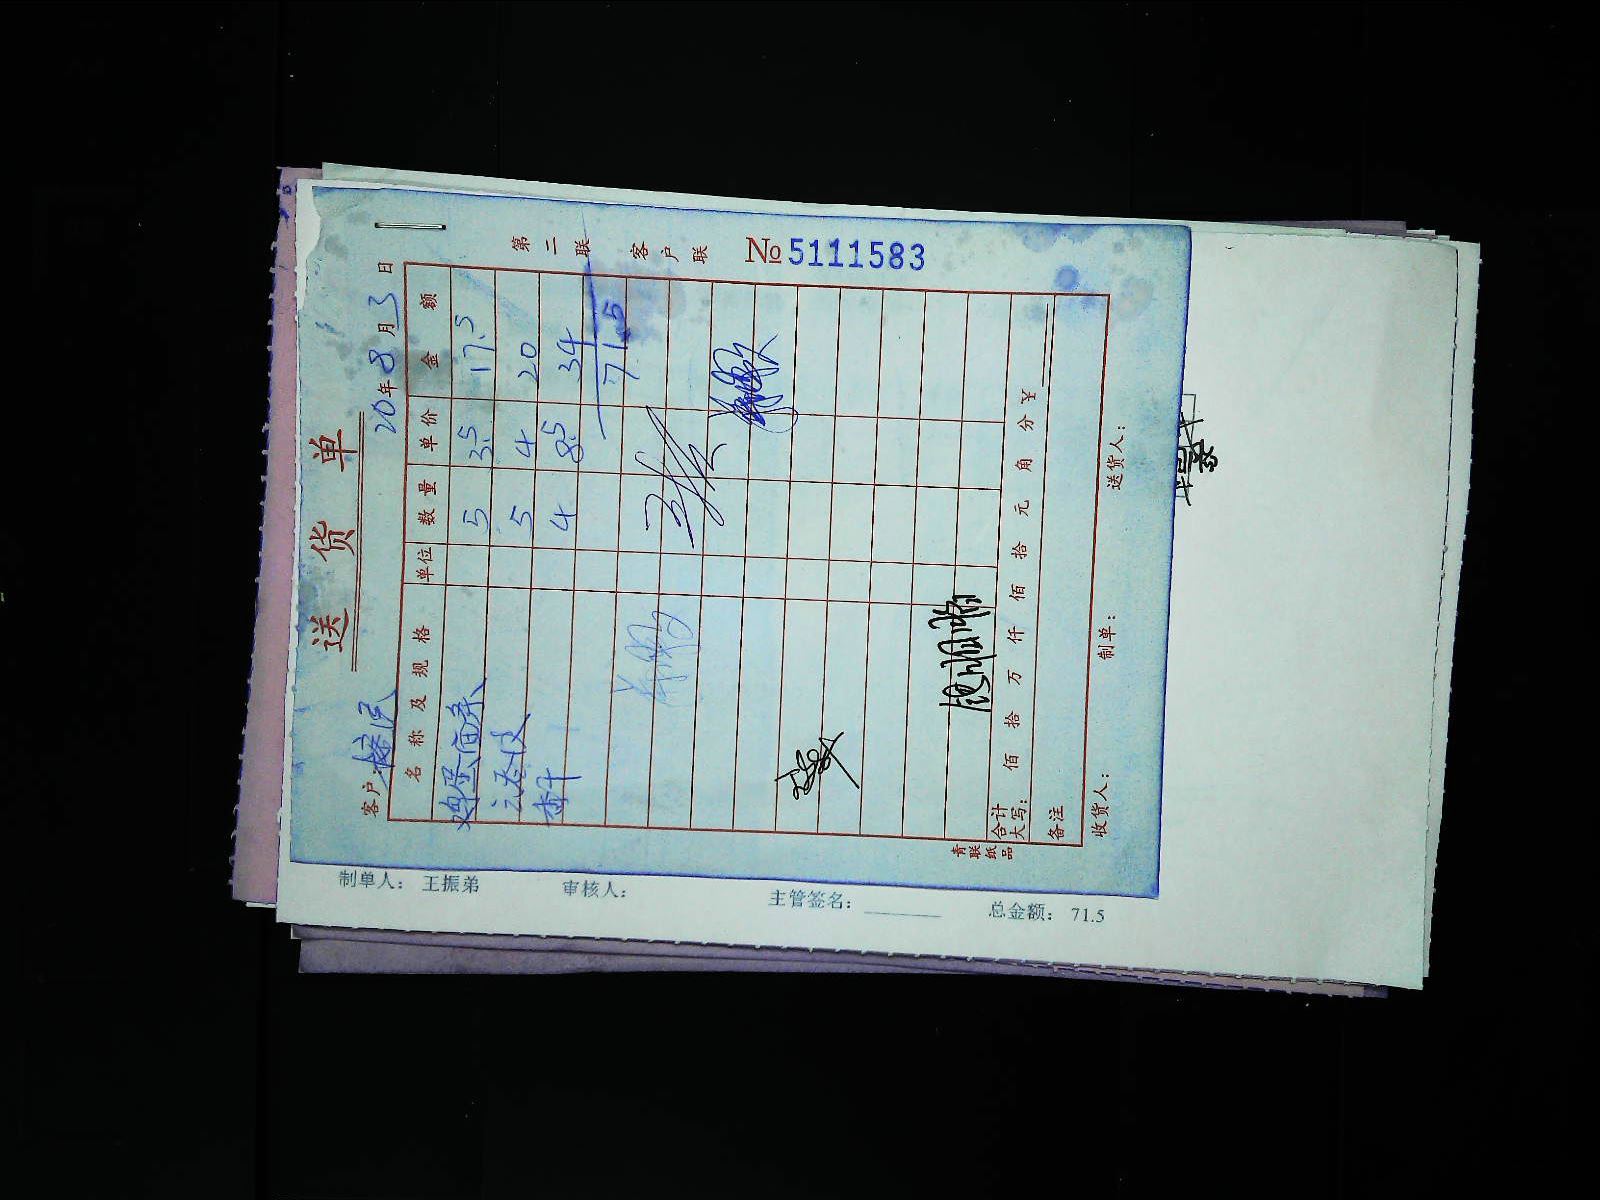 送货单
第二联 客户联
№ 5111583
客户:
20年8月3日
名称及规格 单位 数量 单价 金额
鸡蛋面条 5 3.5 17.5
5 4 20
4 8.5 34
71.5
合计大写: 佰 拾 万 仟 佰 拾 元 角 分 ¥
备注
收货人: 制单: 送货人:
青联纸品
制单人: 王振弟 审核人: 主管签名: 总金额: 71.5